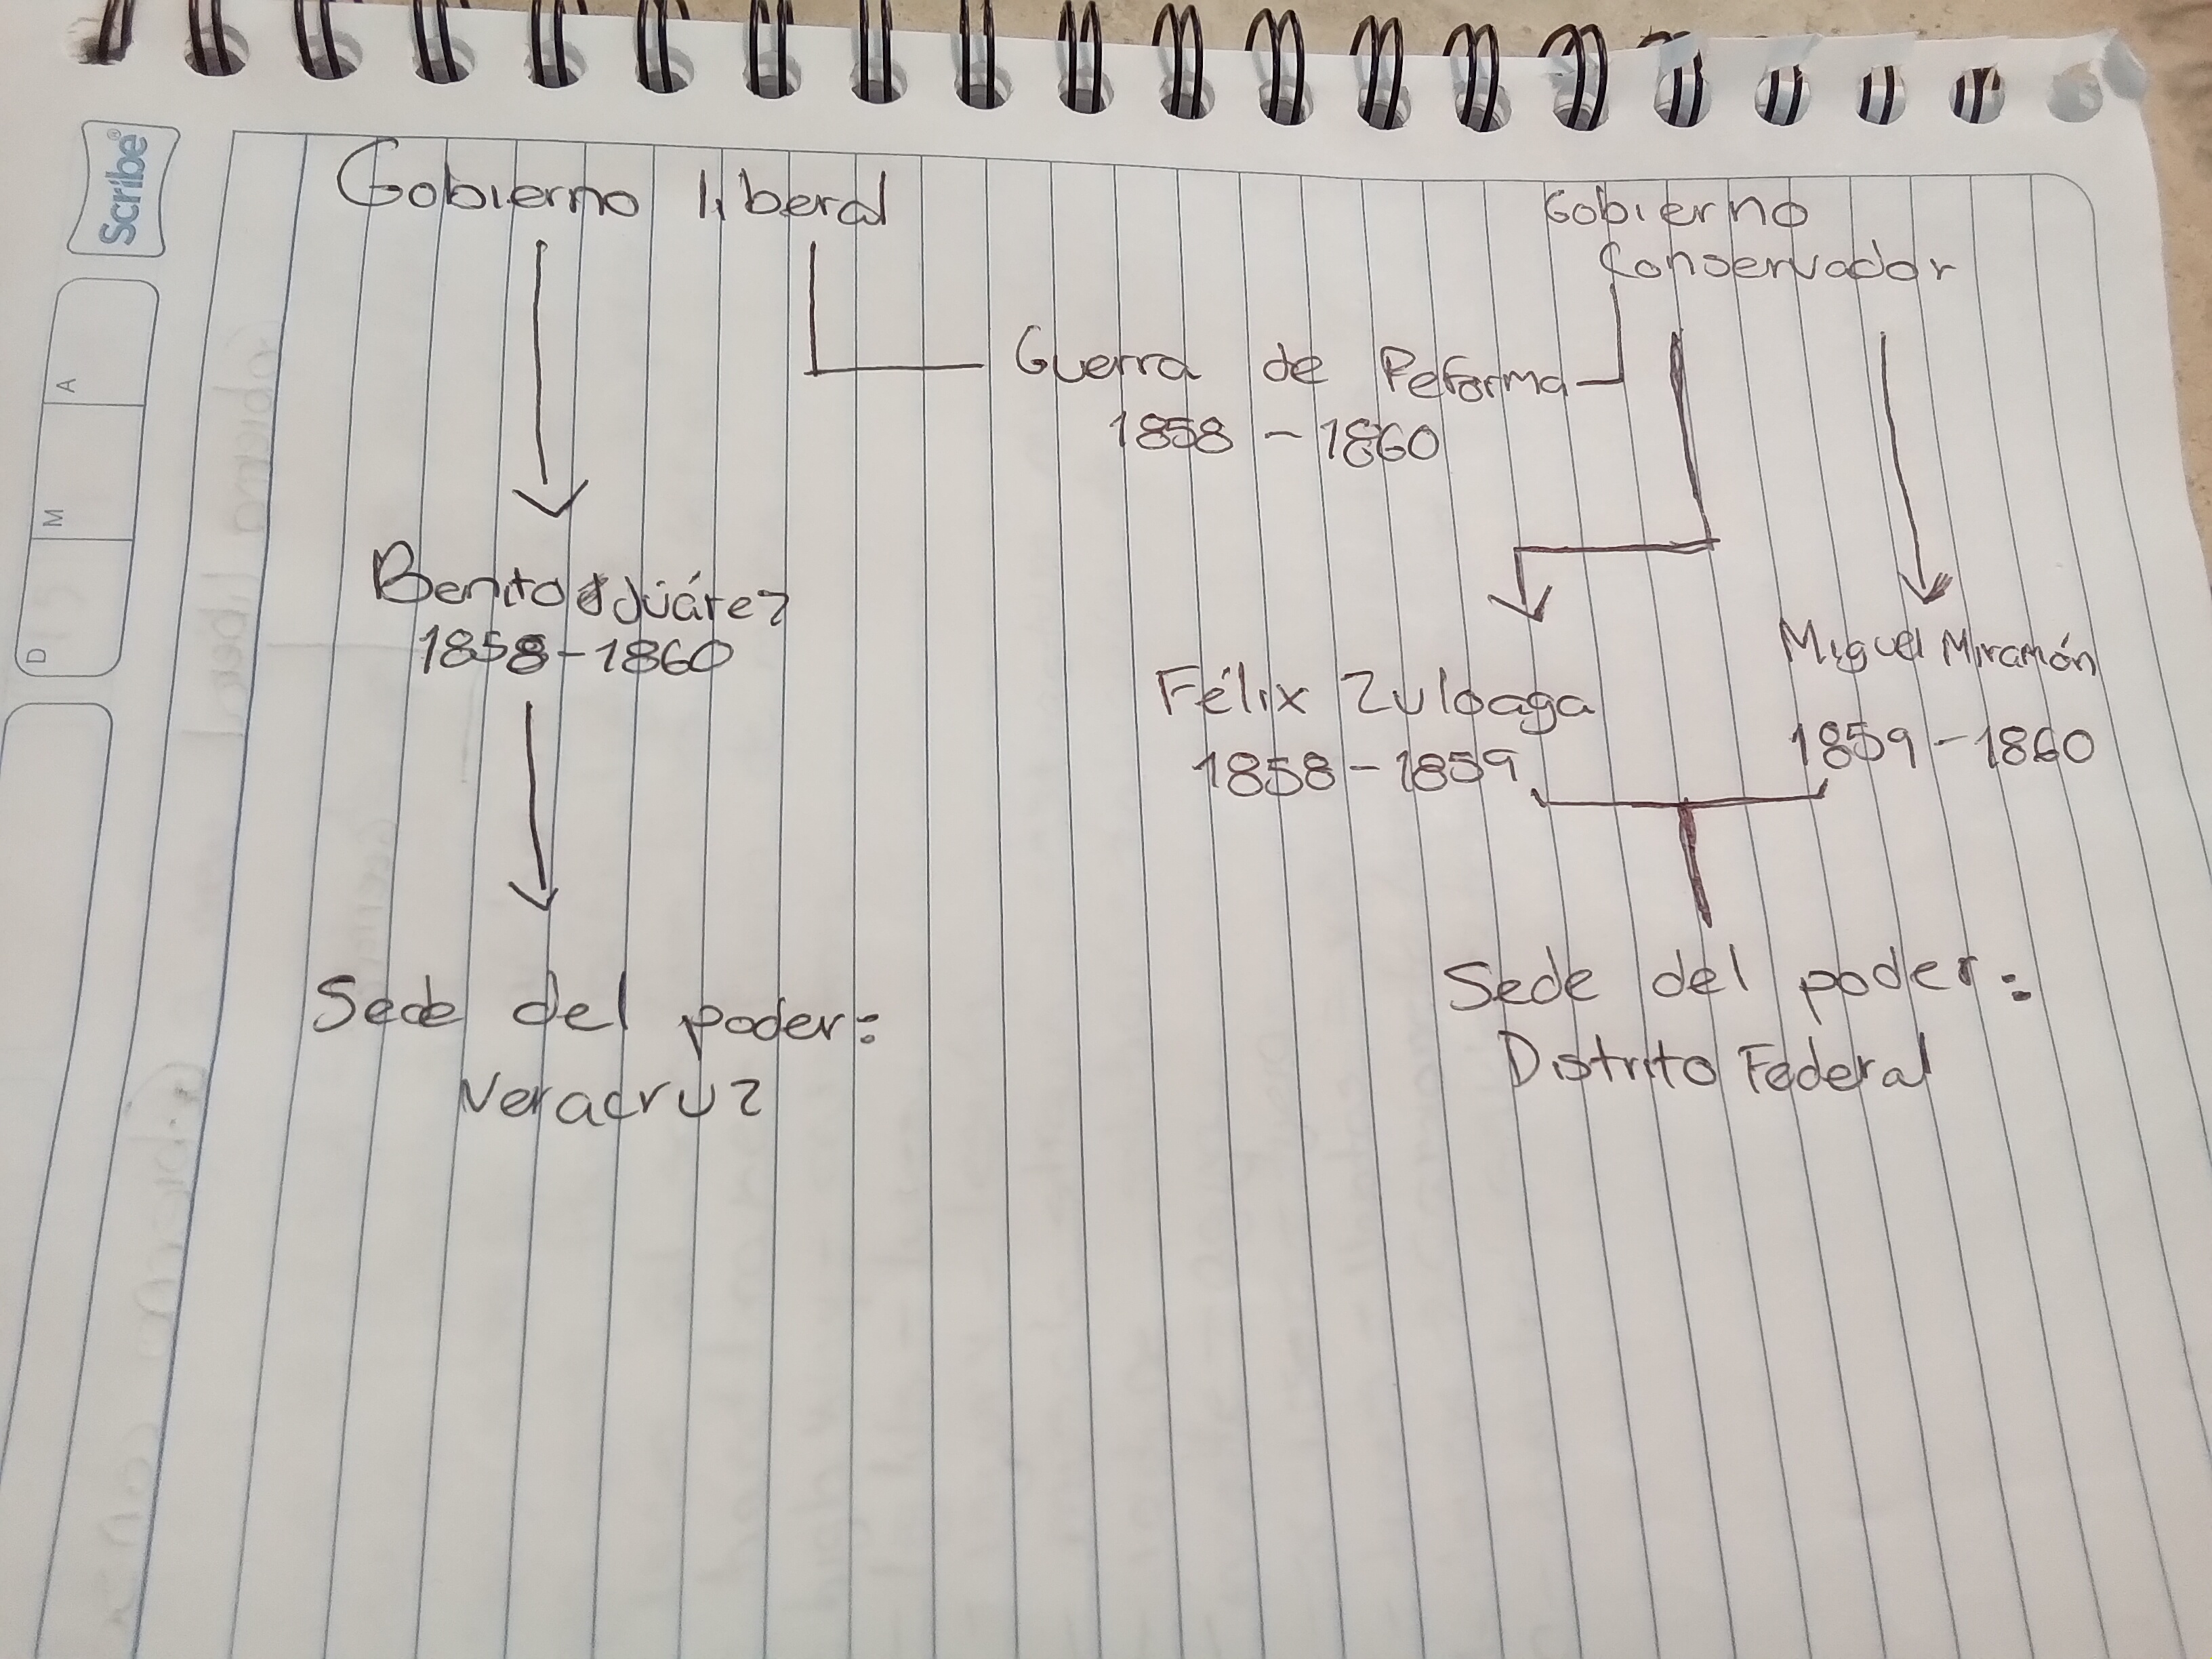 Scribe®
A
M
D
Gobierno liberal
Gobierno
Conservador
Guerra de Reforma
1858 - 1860
Benito Juárez
1858 - 1860
Félix Zuloaga
1858 - 1859
Miguel Miramón
1859 - 1860
Sede del poder:
Veracruz
Sede del poder:
Distrito Federal